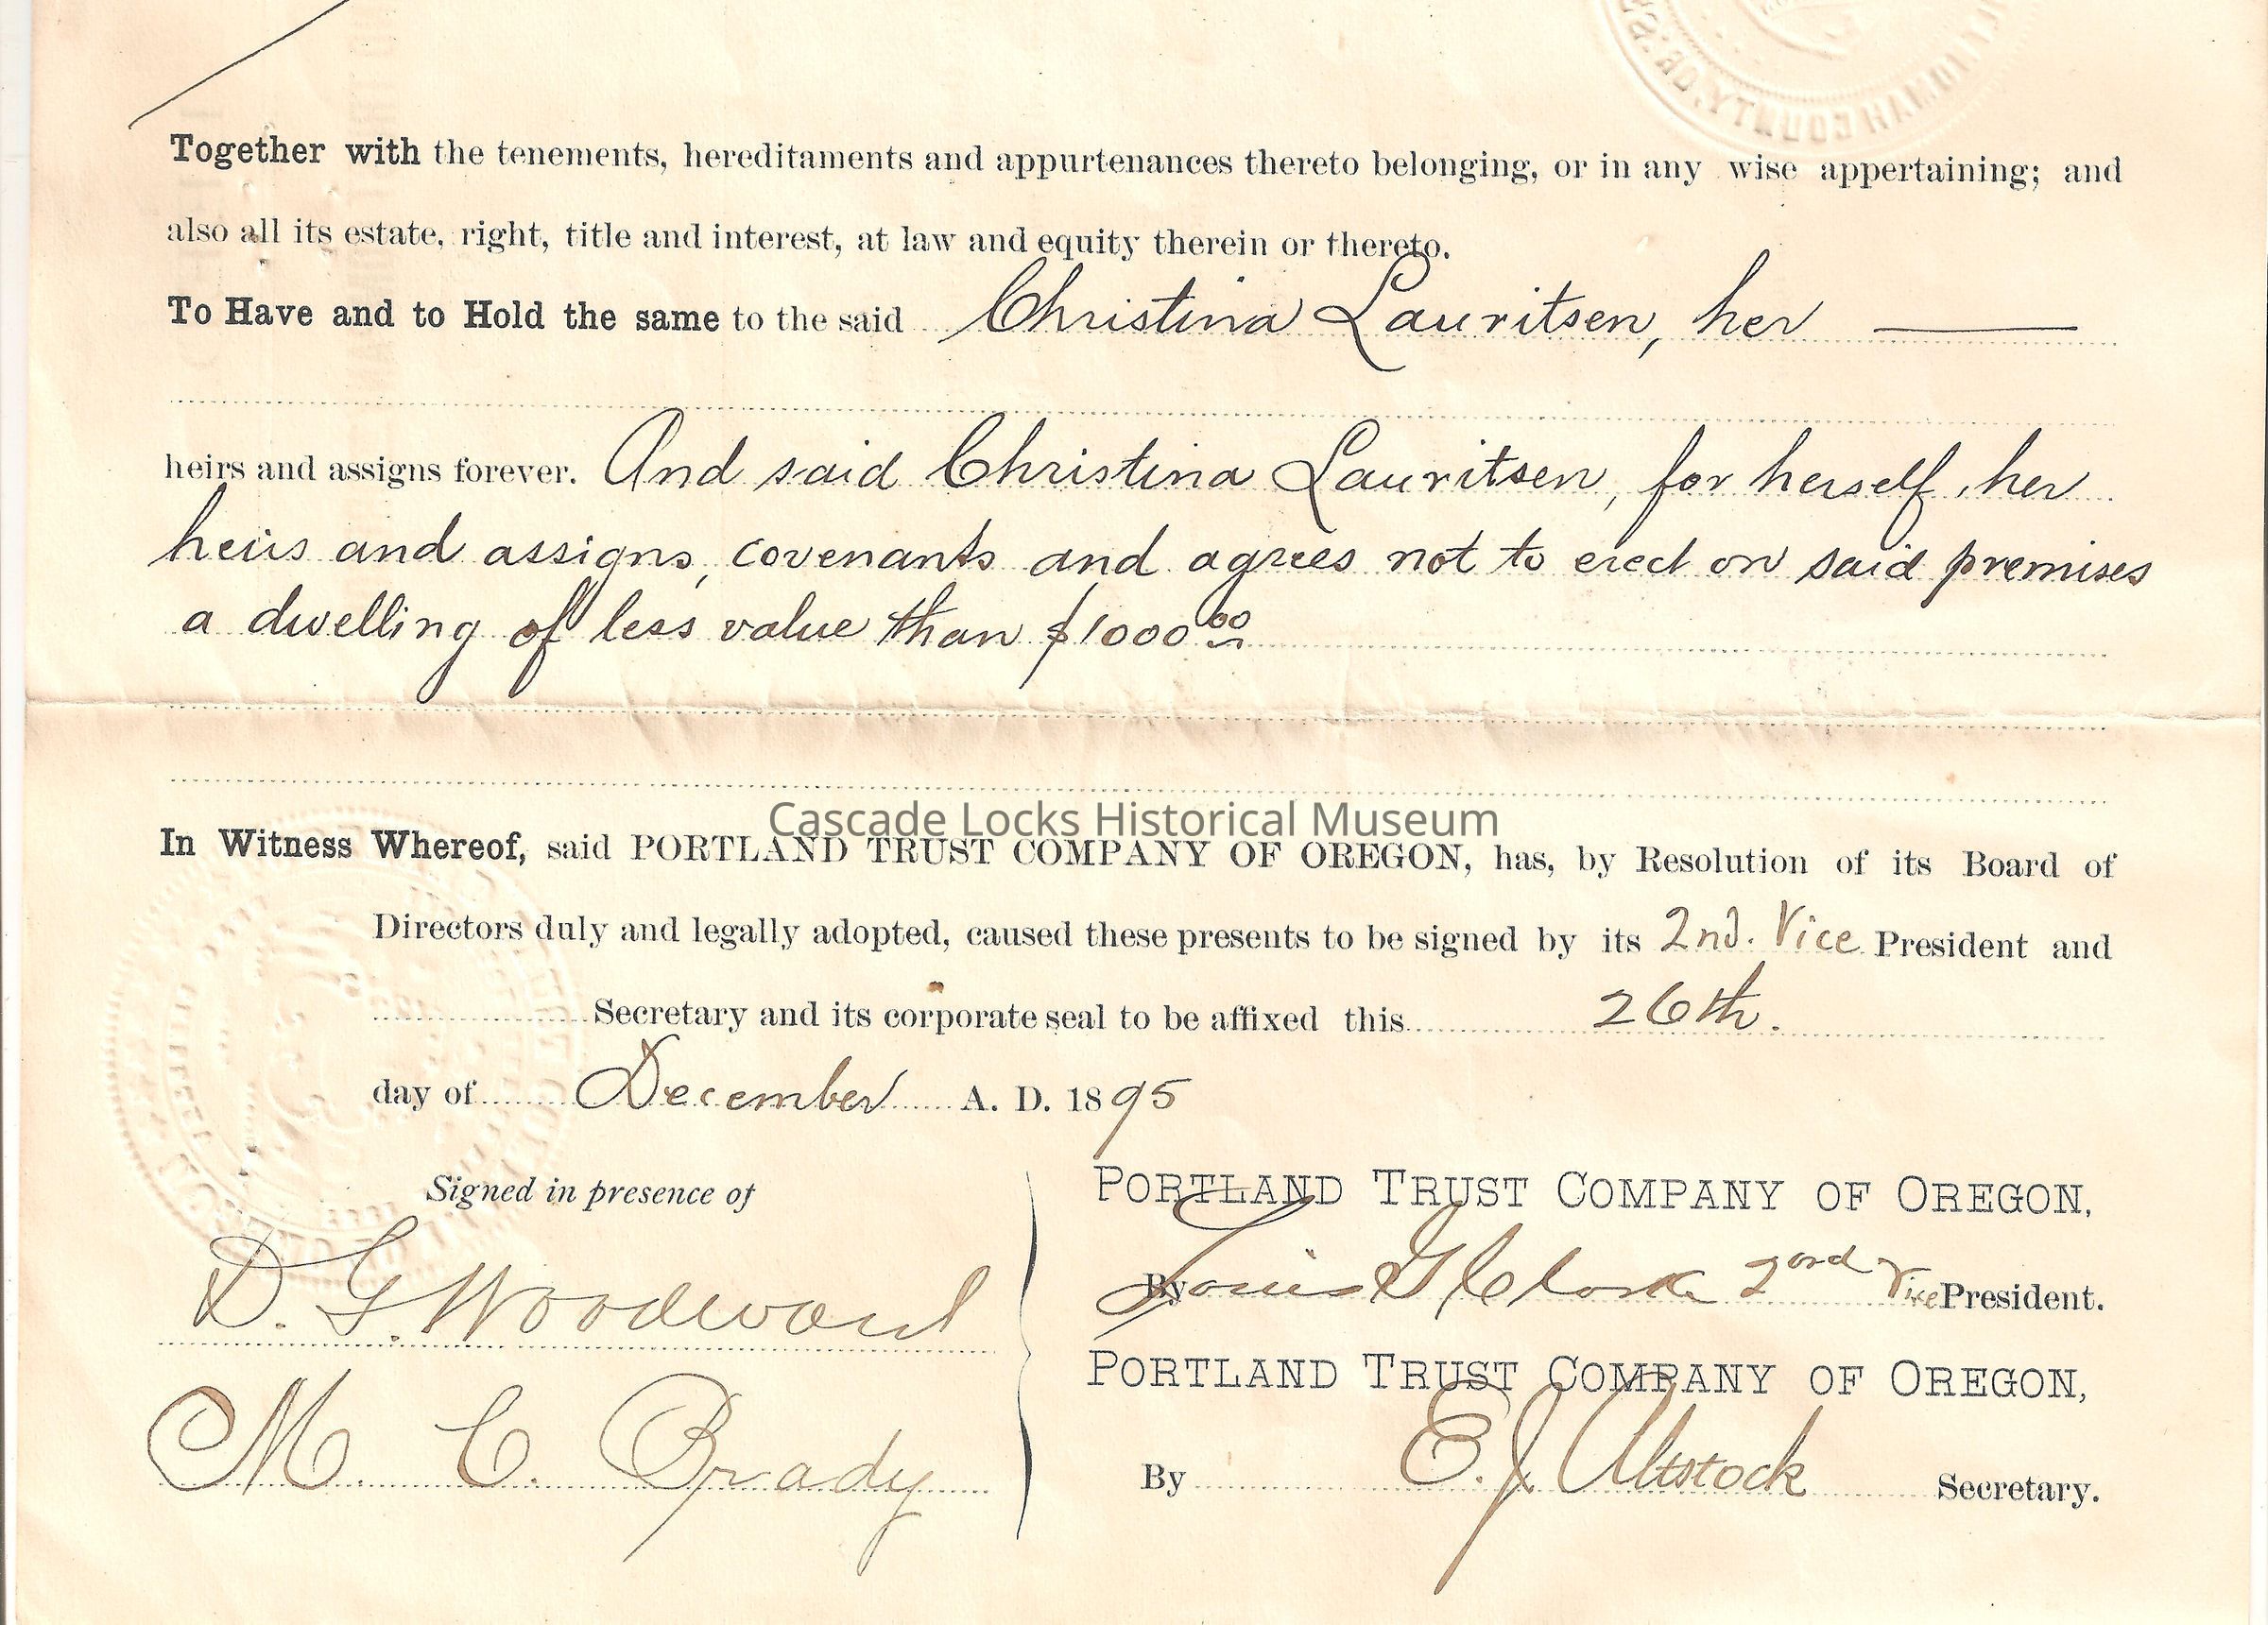 Together with the tenements, hereditaments and appurtenances thereto belonging, or in any wise appertaining; and
also all its estate, right, title and interest, at law and equity therein or thereto.
To Have and to Hold the same to the said Christina Lauritsen, her
heirs and assigns forever. And said Christina Lauritsen, for herself, her
heirs and assigns, covenants and agrees not to erect on said premises
a dwelling of less value than $1000 00
Cascade Locks Historical Museum
In Witness Whereof, said PORTLAND TRUST COMPANY OF OREGON, has, by Resolution of its Board of
Directors duly and legally adopted, caused these presents to be signed by its 2nd. Vice President and
Secretary and its corporate seal to be affixed this 26th.
day of December A. D. 1895
Signed in presence of
D. G. Woodward
M. C. Brady
PORTLAND TRUST COMPANY OF OREGON,
By Louis G Clark 2ond Vice President.
PORTLAND TRUST COMPANY OF OREGON,
By E. J. Altstock Secretary.